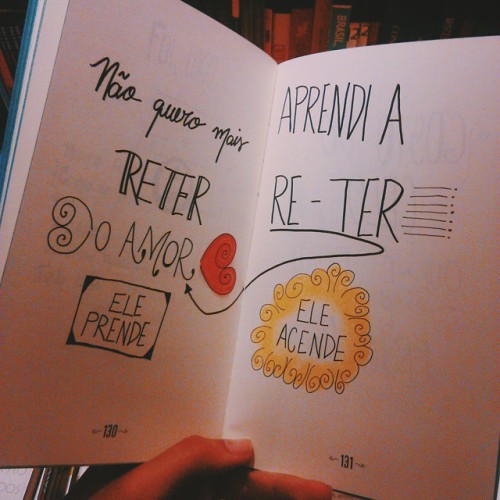 Não quero mais
RETER
DO AMOR
ELE
PRENDE
130
APRENDI A
RE-TER
ELE
ACENDE
131
BRASIL